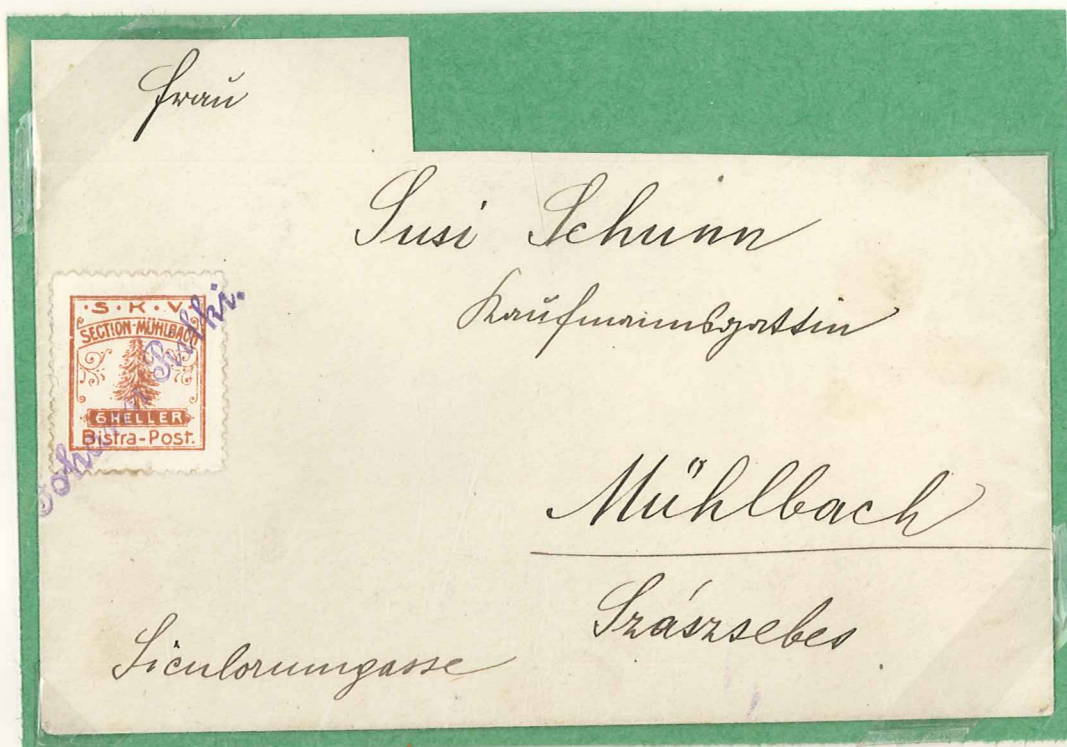 Frau
Susi Schunn
Kaufmannsgattin
·S·K·V·
SECTION-MÜHLBACH
6 HELLER
Bistra-Post.
Mühlbach
Szászsebes
Siculorumgasse